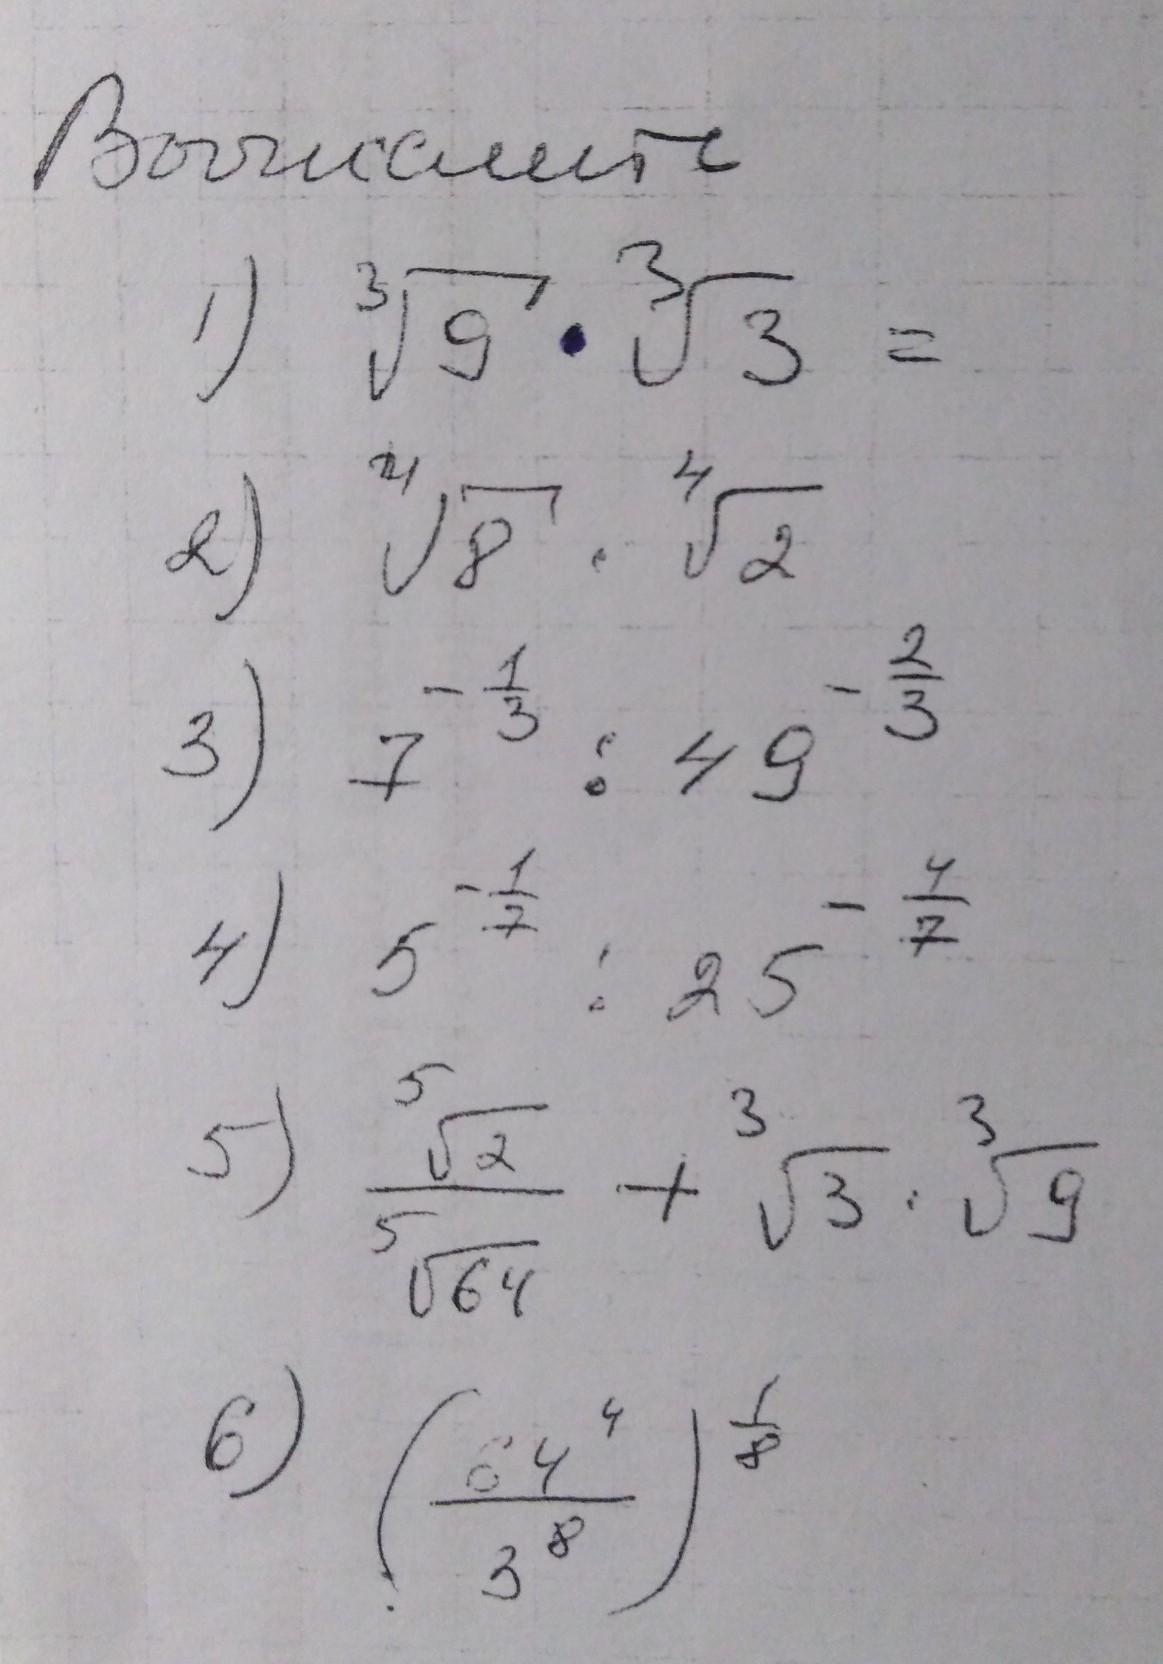 Вычислить
1) ∛9 · ∛3 =
2) ∜8 · ∜2
3) 7^(-1/3) : 49^(-2/3)
4) 5^(-1/7) : 25^(-4/7)
5) ⁵√2 / ⁵√64 + ∛3 · ∛9
6) (64^4 / 3^8)^(1/8)